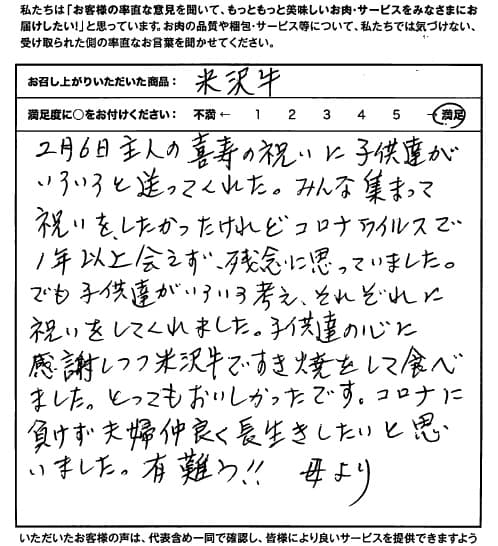 私たちは「お客様の率直な意見を聞いて、もっともっと美味しいお肉・サービスをみなさまにお
届けしたい！」と思っています。お肉の品質や梱包・サービス等について、私たちでは気づけない、
受け取られた側の率直なお言葉を聞かせてください。
お召し上がりいただいた商品： 米沢牛
満足度に○をお付けください： 不満 ← 1 2 3 4 5 → 満足
2月6日主人の喜寿の祝いに子供達が
いろいろと送ってくれた。みんな集まって
祝いを、したかったけれどコロナウイルスで
1年以上会えず、残念に思っていました。
でも子供達がいろいろ考え、それぞれに
祝いをしてくれました。子供達の心に
感謝しつつ米沢牛ですき焼をして食べ
ました。とってもおいしかったです。コロナに
負けず夫婦仲良く長生きしたいと思
いました。有難う!! 母より
いただいたお客様の声は、代表含め一同で確認し、皆様により良いサービスを提供できますよう